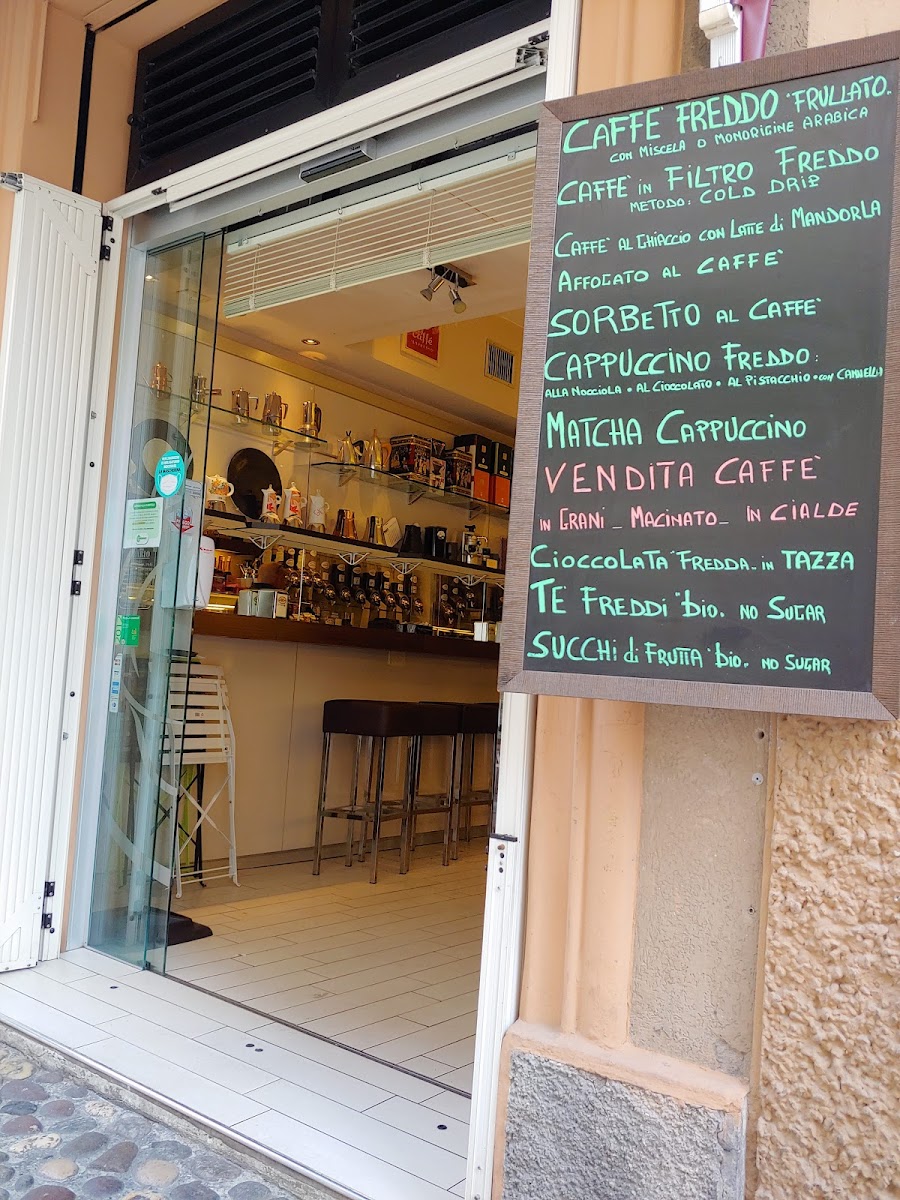 CAFFE' FREDDO "FRULLATO.
CON MISCELA O MONORIGINE ARABICA
CAFFE' in FILTRO FREDDO
METODO: COLD DRIP
CAFFE' AL GHIACCIO CON LATTE di MANDORLA
AFFOGATO AL CAFFE'
SORBETTO AL CAFFE'
CAPPUCCINO FREDDO:
ALLA NOCCIOLA • AL CIOCCOLATO • AL PISTACCHIO • CON CANNELLA
MATCHA CAPPUCCINO
VENDITA CAFFE'
IN GRANI _ MACINATO _ IN CIALDE
CIOCCOLATA FREDDA _ IN TAZZA
TE FREDDI "bio. NO SUGAR
SUCCHI di FRUTTA "bio. NO SUGAR
caffè